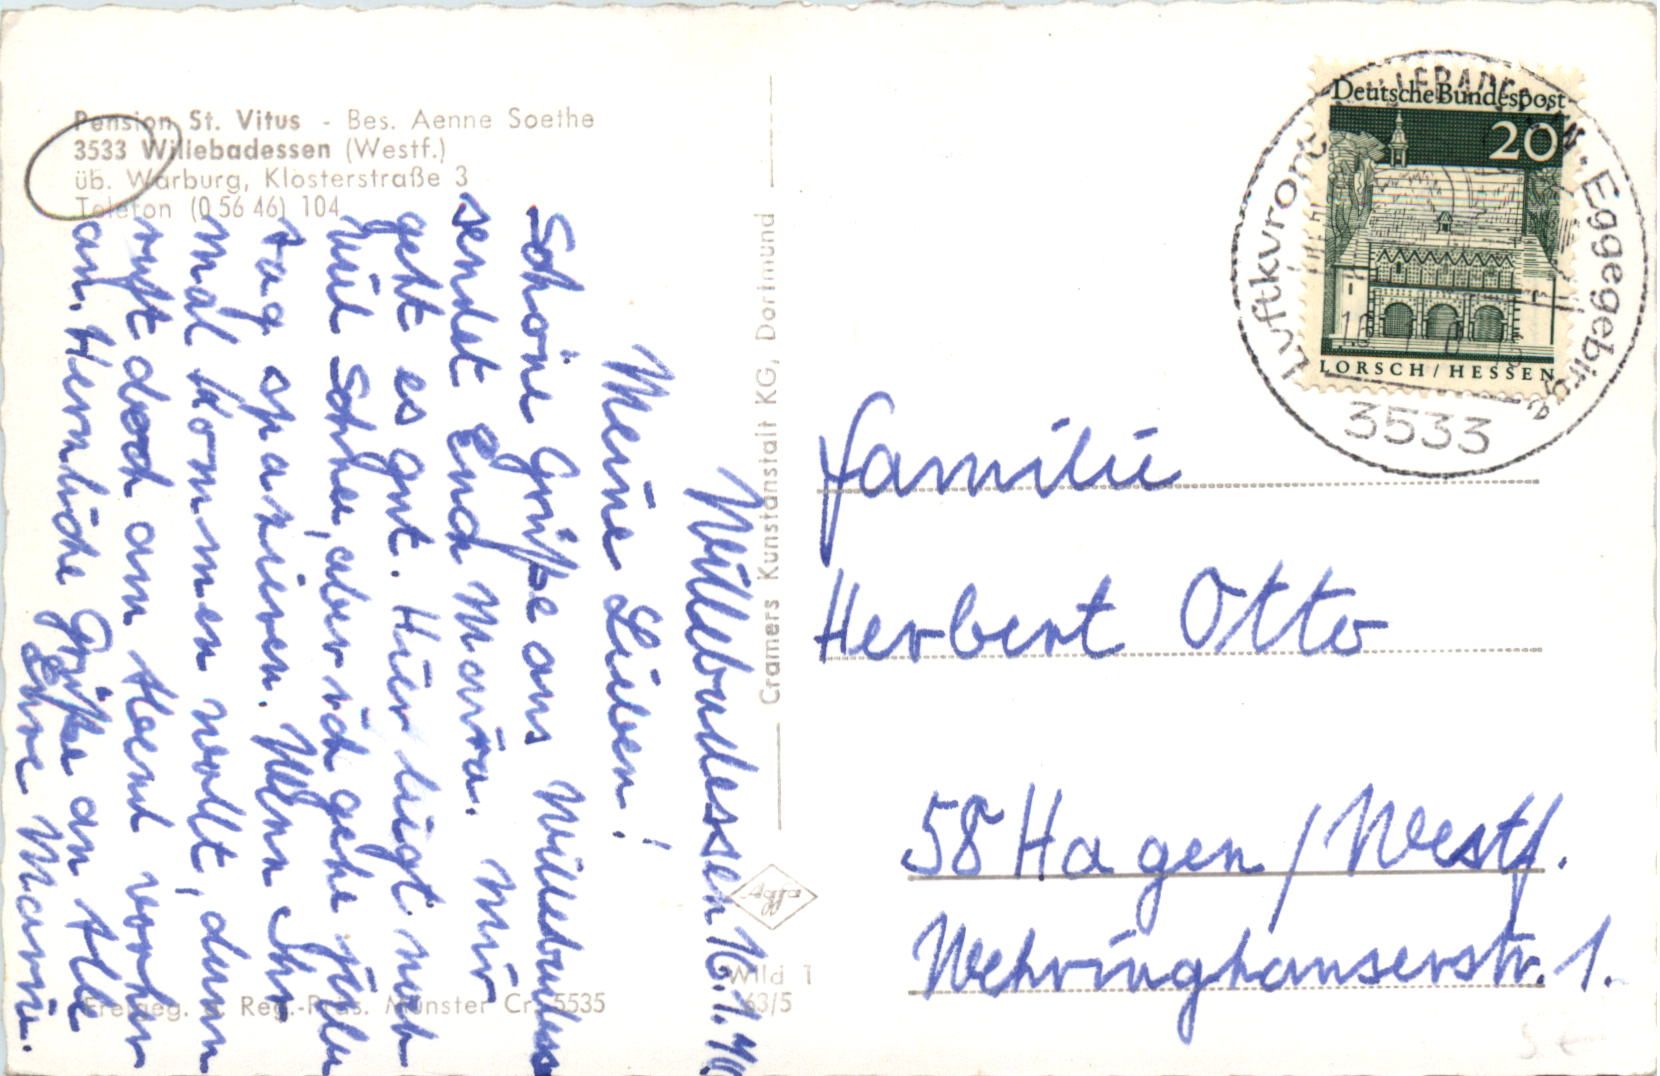 Pension St. Vitus - Bes. Aenne Soethe
3533 Willebadessen (Westf.)
üb. Warburg, Klosterstraße 3
Telefon (0 56 46) 104
Willebadessen 16.1.70
Meine Lieben!
Schöne Grüße aus Willebadess
sendet Euch Maria. Mir
geht es gut. Hier liegt noch
viel Schnee, aber ich gehe jeden
Tag spazieren. Wenn Ihr
mal kommen wollt, dann
ruft doch am Abend vorher
an. Herzliche Grüße an Alle
Eure Maria.
Cramers Kunstanstalt KG, Dortmund
Agfa
Wild 1
63/5
Freigeg. d. Reg.-Präs. Münster Cr. 5535
Deutsche Bundespost
20
LORSCH/HESSEN
Luftkurort WILLEBADESSEN · Eggegebirge
3533
Familie
Herbert Otto
58 Hagen/Westf.
Wehringhauserstr. 1.